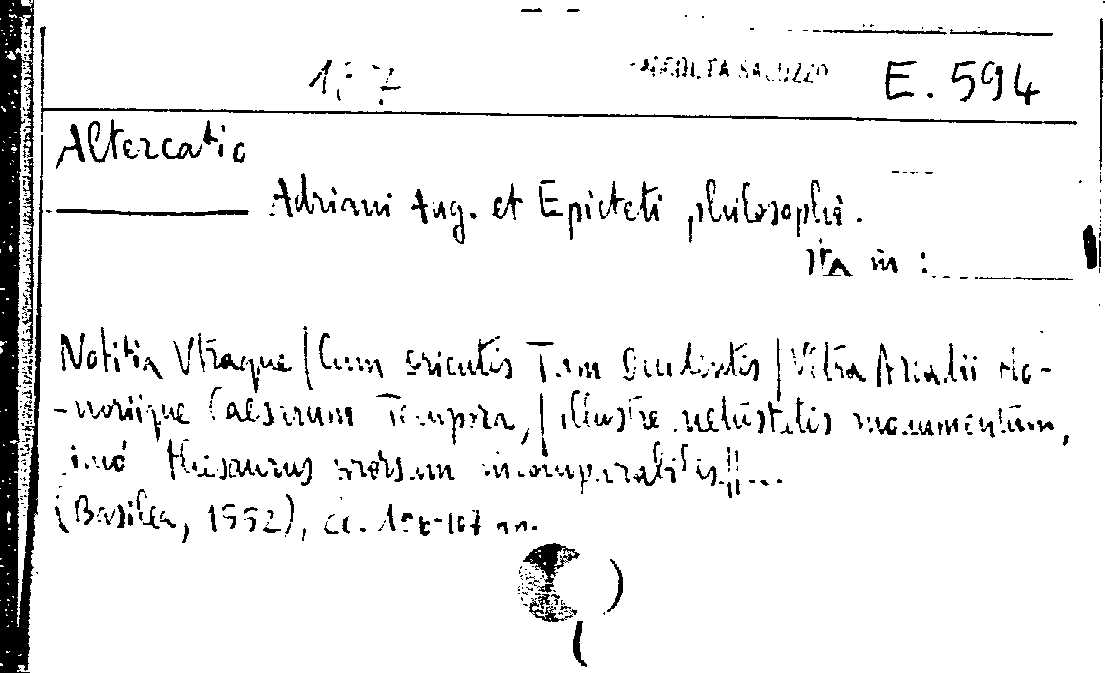 RACCOLTA SALUZZO E. 594
Altercatio
Adriani Aug. et Epicteti philosophi.
Sta in :
Notitia Vtraque | Cum orientis Tum Occidentis | Vltra Arcadii Ho-
-noriique Caesarum Tempora, | illustre uetustatis monumentum,
imò thesaurus prorsum incomparabilis || ...
(Basilea, 1552), cc. nn.